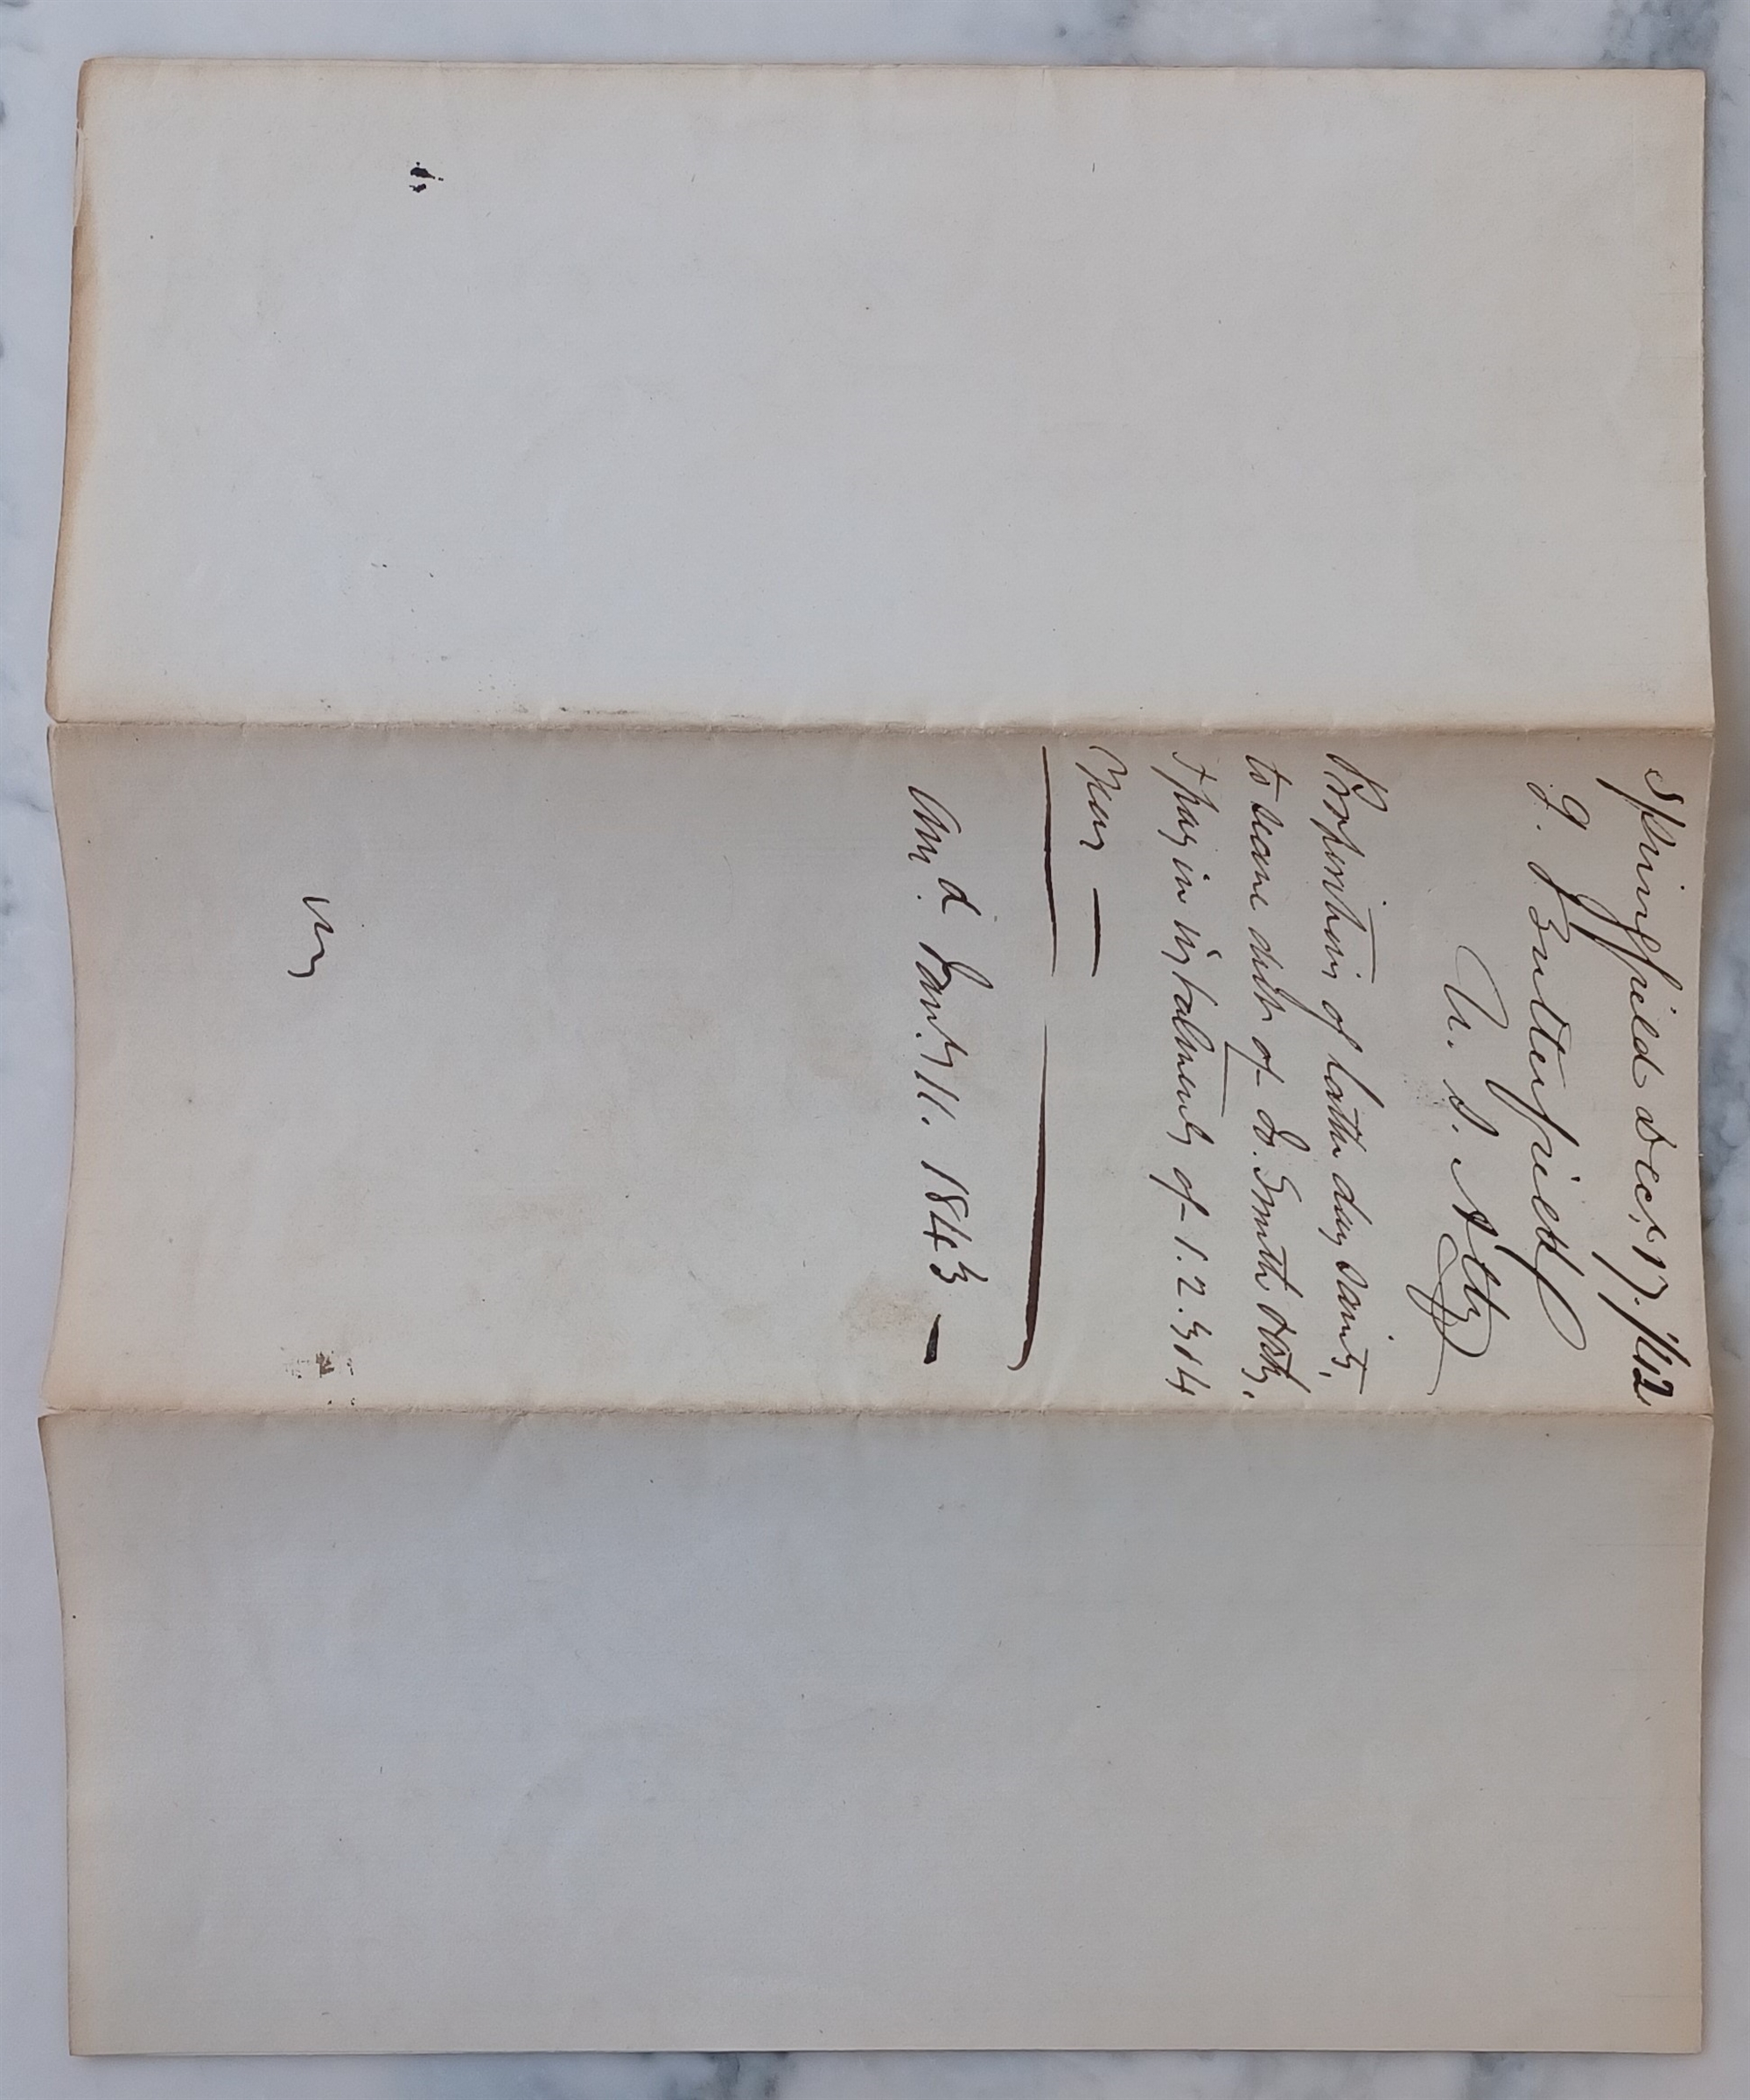 Springfield Dec, 17. /42
J. Butterfield
U. S. Atty
Proposition of Latter day Saints,
to secure debt of Jo. Smith &
& pay in instalments of 1. 2. 3 & 4
Years —
Ans.d Jan.y 11. 1843 —